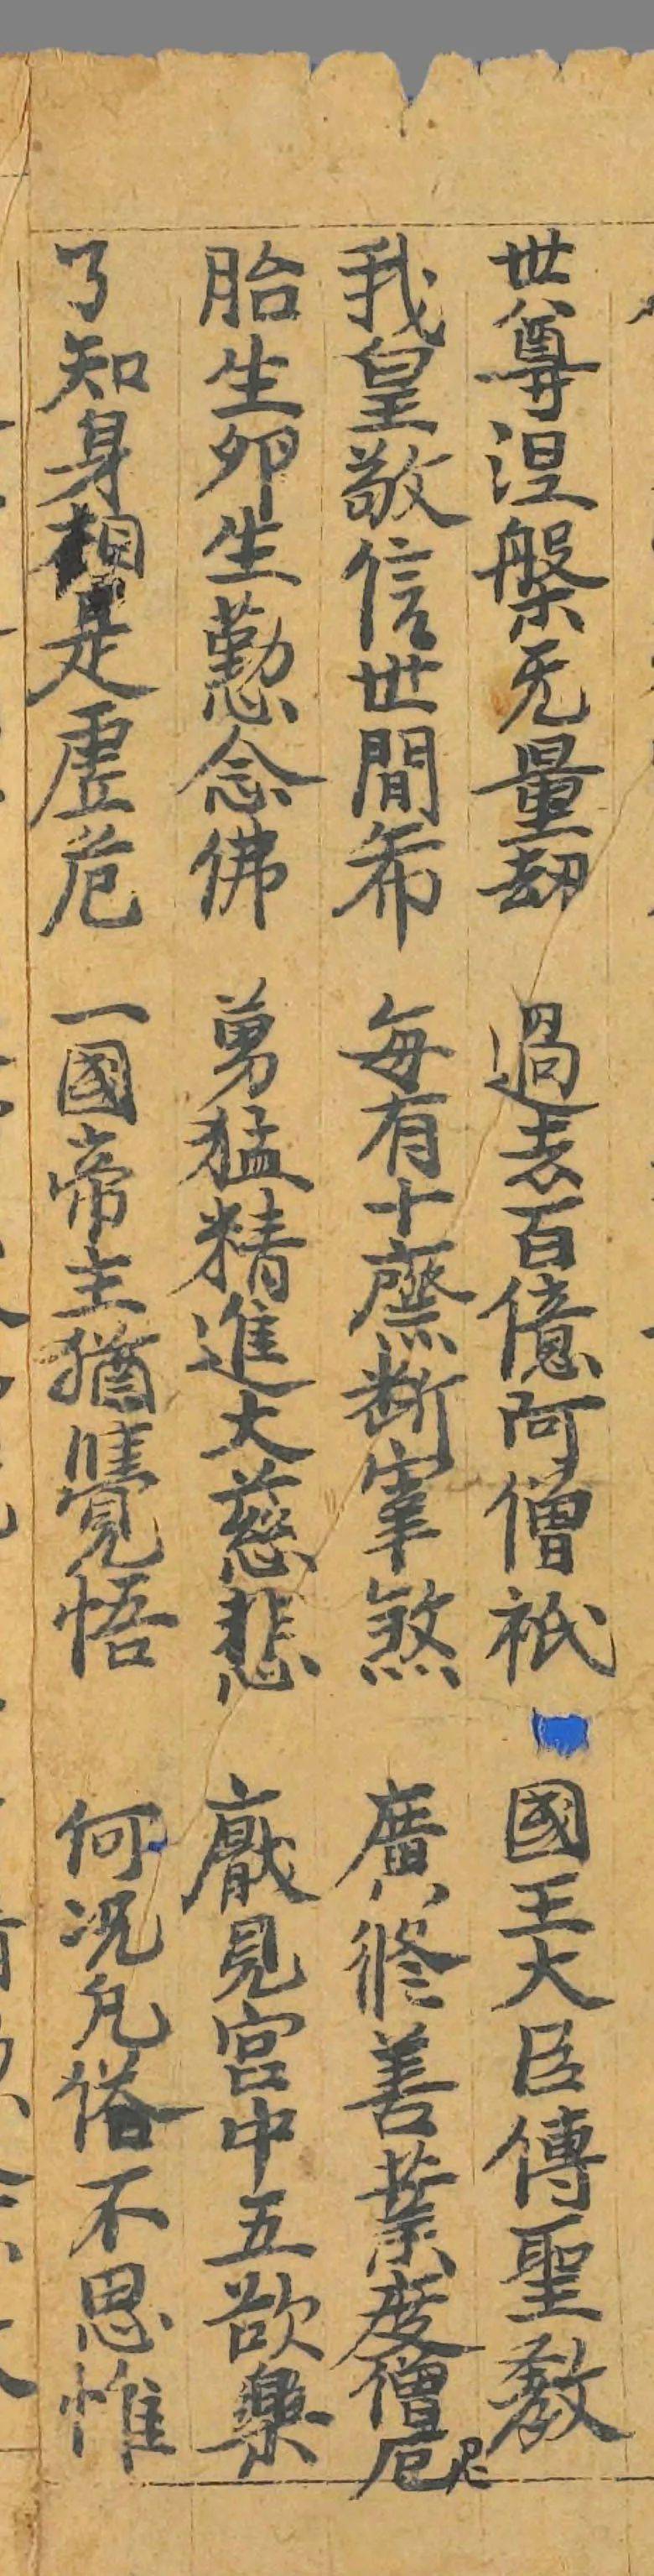 世尊涅槃无量劫 過去百億阿僧祇 國王大臣傳聖教
我皇敬信世間希 每有十齋断宰煞 廣修善業度僧尼
胎生卵生勤念佛 勇猛精進大慈悲 厭見宮中五欲樂
了知身相是虛危 一國帝主猶覺悟 何况凡俗不思惟